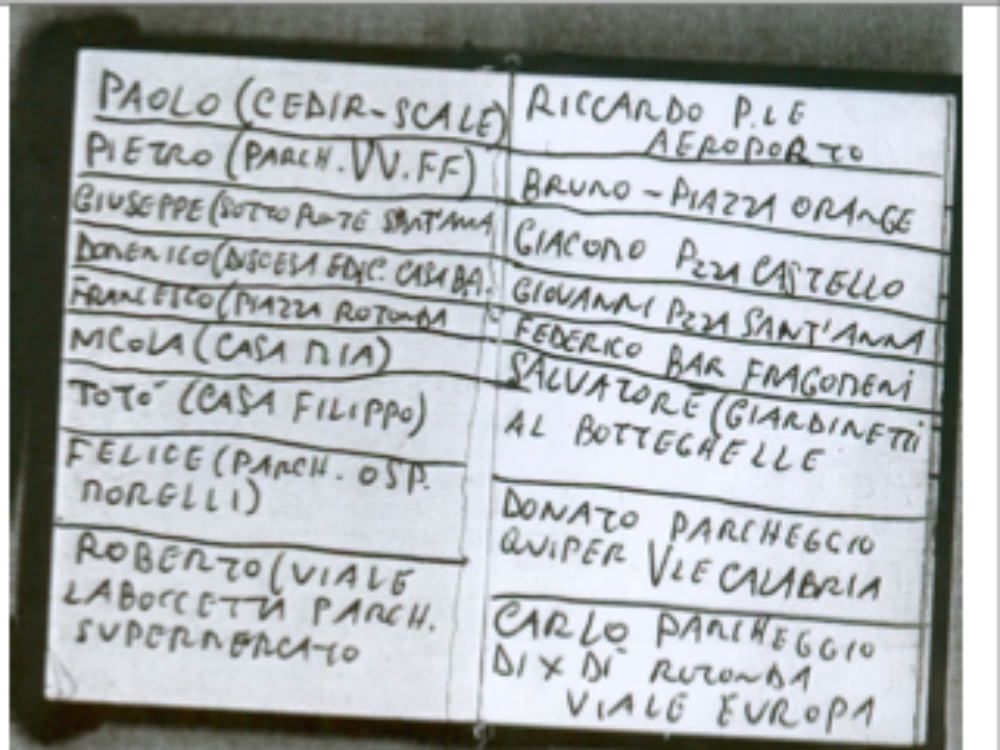 PAOLO (CEDIR-SCALE)
PIETRO (PARCH. VV.FF)
GIUSEPPE (SOTTO PONTE SANT'ANNA
DOMENICO (DISCESA EDIC. CASA BA.
FRANCESCO (PIAZZA ROTONDA
NICOLA (CASA MIA)
TOTO' (CASA FILIPPO)
FELICE (PARCH. OSP.
MORELLI)
ROBERTO (VIALE
LABOCCETTA PARCH.
SUPERMERCATO
RICCARDO P.LE
AEROPORTO
BRUNO - PIAZZA ORANGE
GIACOMO PZZA CASTELLO
GIOVANNI PZZA SANT'ANNA
FEDERICO BAR FRAGOMENI
SALVATORE (GIARDINETTI
AL BOTTEGHELLE
DONATO PARCHEGGIO
QUIPER VLE CALABRIA
CARLO PARCHEGGIO
DI X DI ROTONDA
VIALE EUROPA